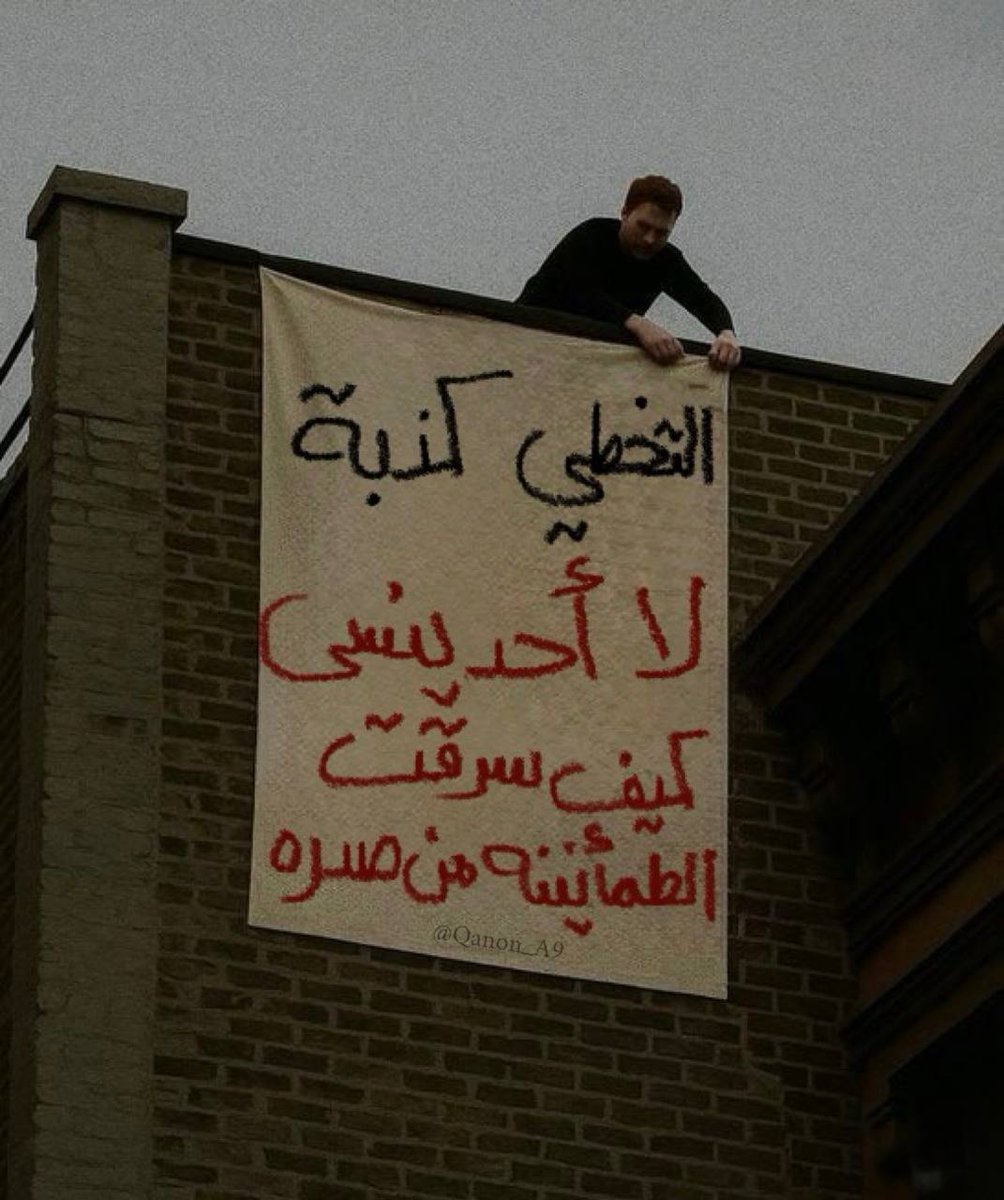 التخطي كذبة
لا أحد ينسى
كيف سرقت
الطمأنينه من صدره
@Qanon_A9